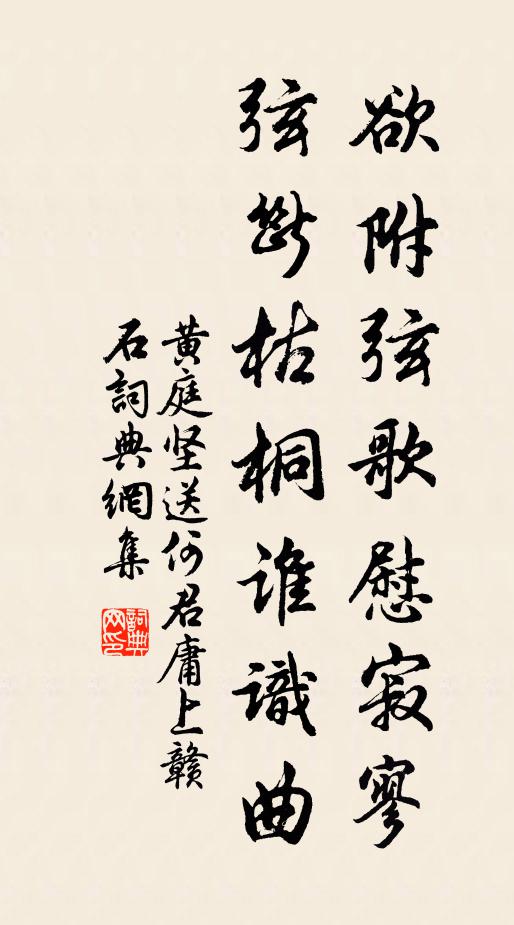 欲附弦歌慰寂寥
弦断枯桐谁識曲
黄庭坚送何君庸上赣
石詞典網集
詞典网印